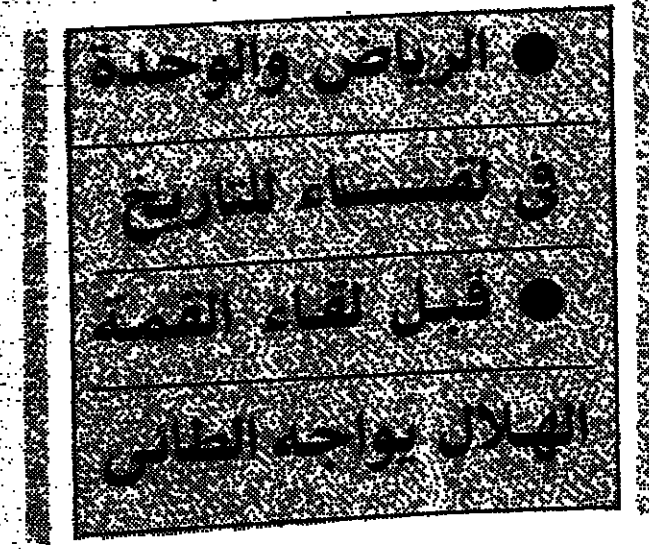 ● الرياض والوحدة
في لقــــاء للتاريخ
● قبل لقاء القمة
الهلال يواجه الطائي